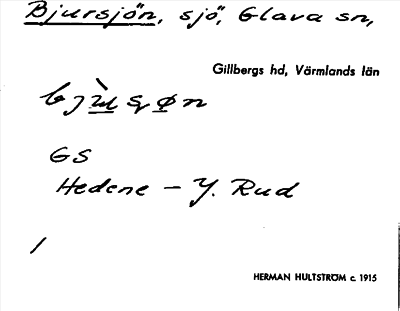 Bjursjön, sjö, Glava sn,
Gillbergs hd, Värmlands län
GS
Hedene – Y. Rud
/
HERMAN HULTSTRÖM c. 1915